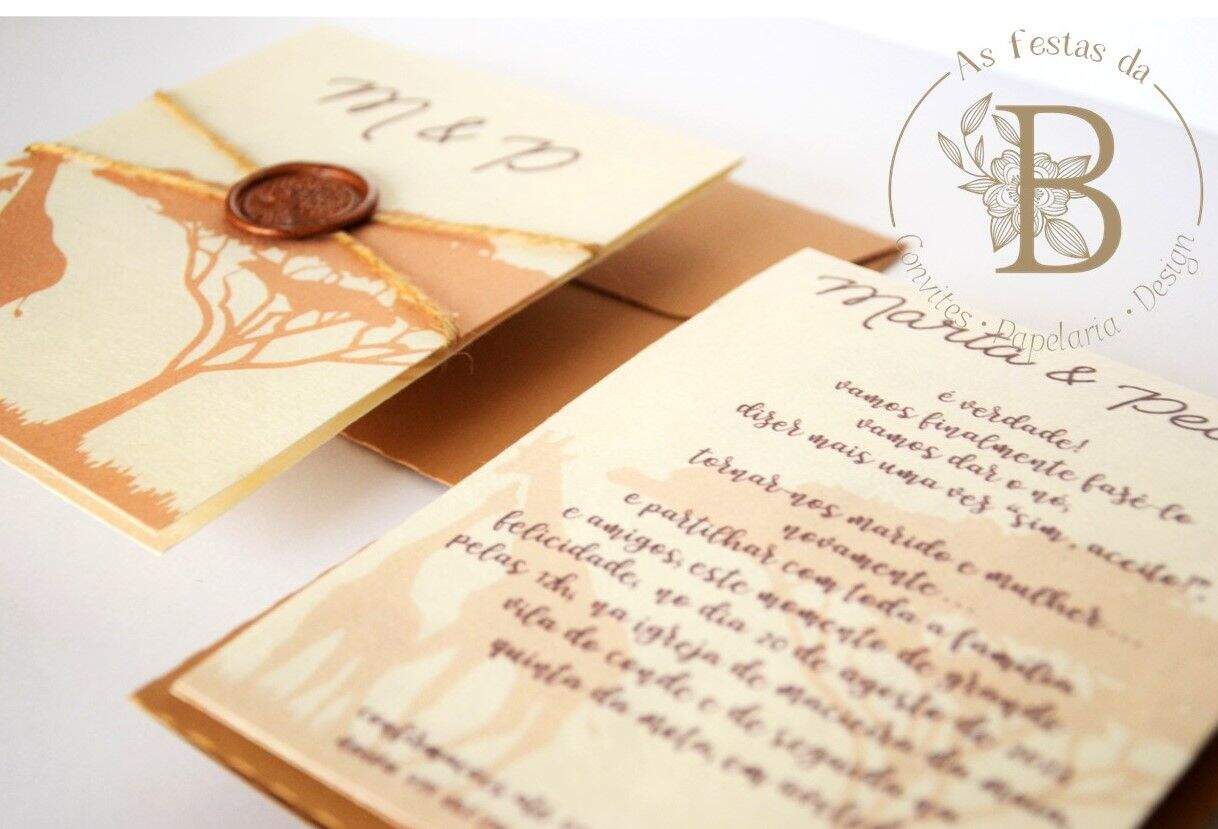 As festas da
B
Convites • Papelaria • Design
M & P
Marta & Ped
é verdade!
vamos finalmente fazê-lo
vamos dar o nó,
dizer mais uma vez "sim, aceito!",
tornar-nos marido e mulher...
novamente...
e partilhar com toda a família
e amigos, este momento de grande
felicidade, no dia 20 de agosto de 2022
pelas 12h, na igreja de macieira da maia,
vila do conde e de seguida na
quinta da mata, em